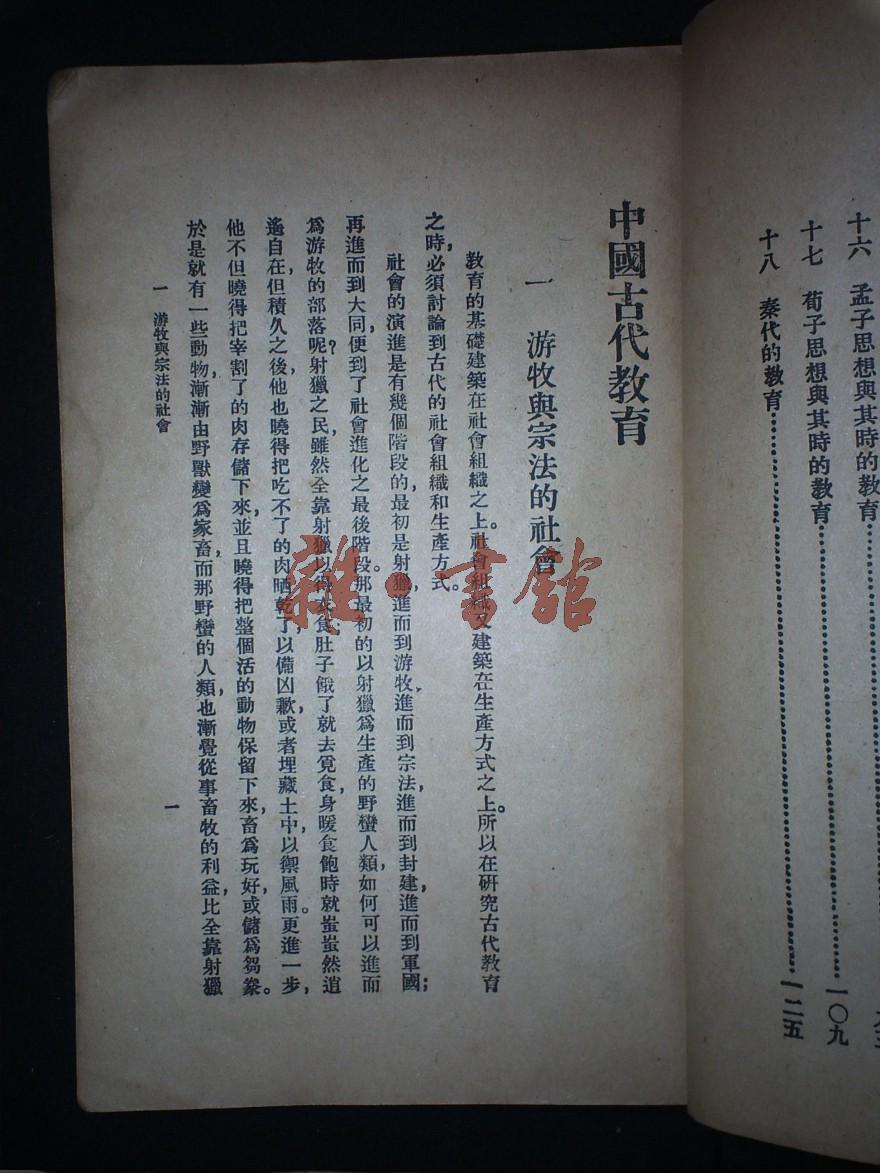 十六　孟子思想與其時的教育
十七　荀子思想與其時的教育……一〇九
十八　秦代的教育……一二五
中國古代教育
一　游牧與宗法的社會
教育的基礎建築在社會組織之上。社會組織又建築在生產方式之上。所以在研究古代教育
之時，必須討論到古代的社會組織和生產方式。
社會的演進是有幾個階段的，最初是射獵，進而到游牧，進而到宗法，進而到封建，進而到軍國；
再進而到大同，便到了社會進化之最後階段。那最初的以射獵為生產的野蠻人類，如何可以進而
為游牧的部落呢？射獵之民，雖然全靠射獵以得衣食，肚子餓了就去覓食，身暖食飽時就蚩蚩然逍
遙自在，但積久之後，他也曉得把吃不了的肉晒乾了，以備凶歉，或者埋藏土中，以禦風雨。更進一步，
他不但曉得把宰割了的肉存儲下來，並且曉得把整個活的動物保留下來，畜為玩好，或儲為芻豢。
於是就有一些動物，漸漸由野獸變為家畜，而那野蠻的人類，也漸覺從事畜牧的利益，比全靠射獵
一　游牧與宗法的社會
一
雜·書館